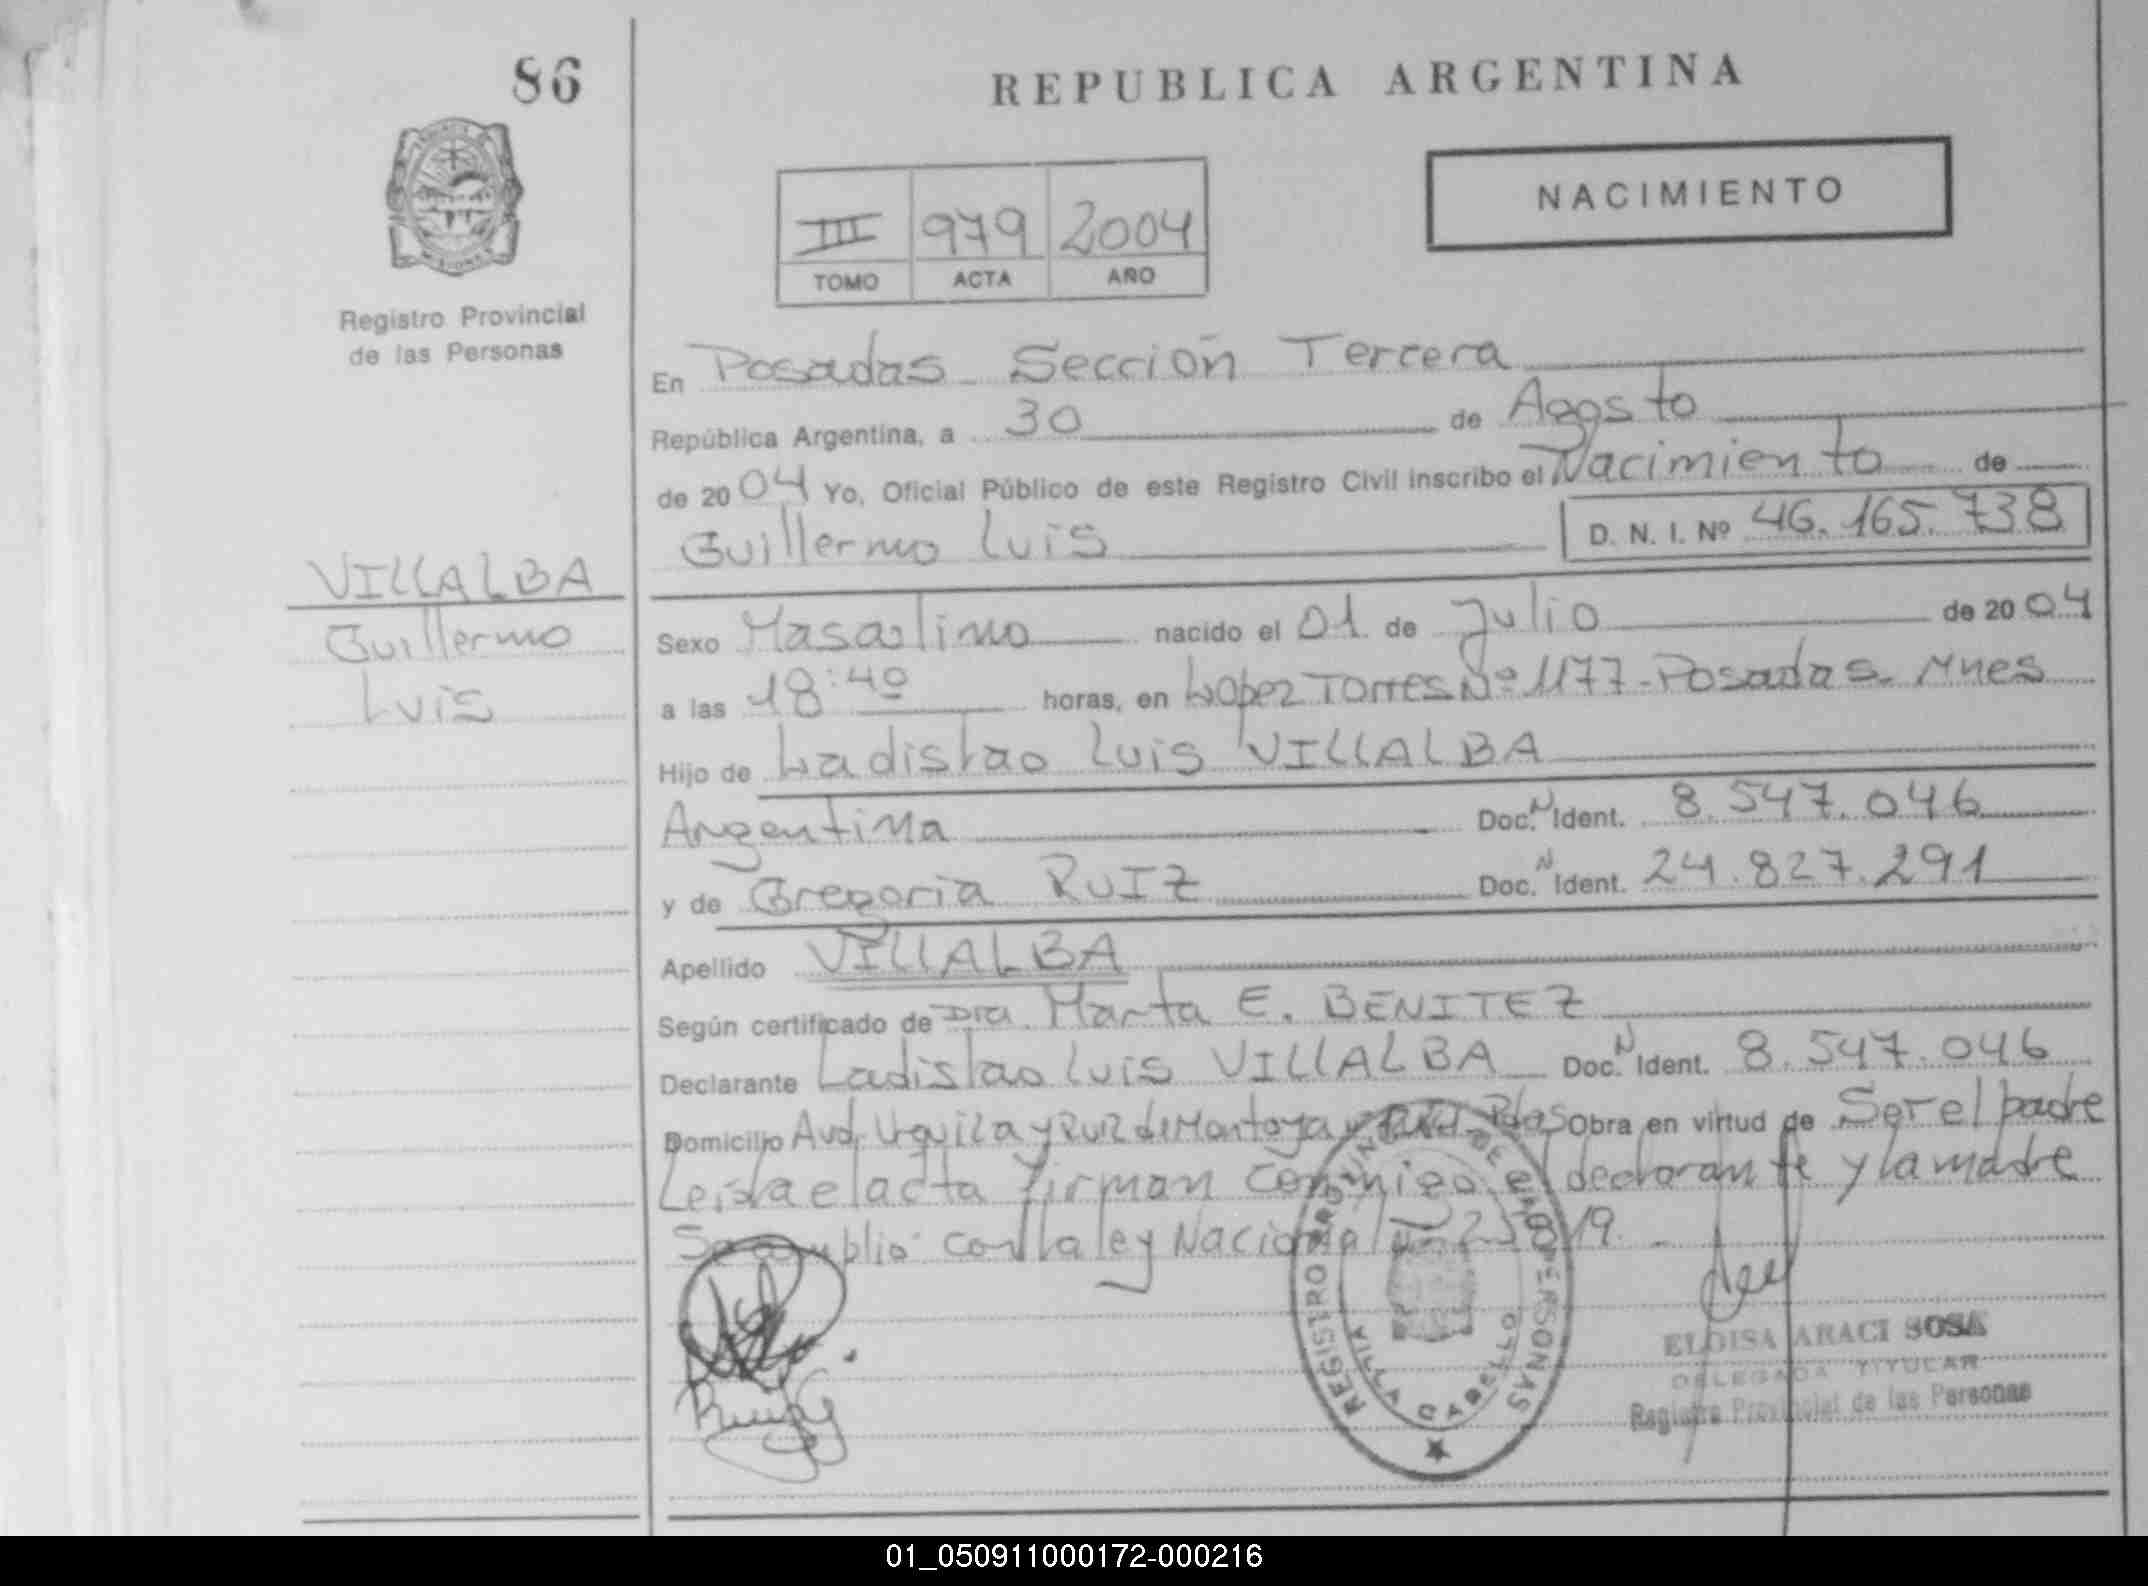 86
REPUBLICA ARGENTINA
NACIMIENTO
III 979 2004
TOMO ACTA AÑO
Registro Provincial
de las Personas
En Posadas Sección Tercera
República Argentina, a 30 de Agosto
de 2004 Yo, Oficial Público de este Registro Civil inscribo el Nacimiento de
Guillermo Luis D. N. I. Nº 46.165.738
VILLALBA
Guillermo
Luis
Sexo Masculino nacido el 01 de Julio de 2004
a las 18:40 horas, en Lopez Torres Nº 1177-Posadas-Mnes
Hijo de Ladislao Luis VILLALBA
Argentina Doc. N Ident. 8.547.046
y de Gregoria RUIZ Doc. N Ident. 24.827.291
Apellido VILLALBA
Según certificado de Dra Marta E. BENITEZ
Declarante Ladislao Luis VILLALBA Doc. N Ident. 8.547.046
Domicilio Avd. Urquiza y Ruiz de Montoya Pdas Obra en virtud de Ser el padre
Leida el acta firman conmigo el declarante y la madre
Se cumplio con la ley Nacional 25819.
REGISTRO PROVINCIAL DE LAS PERSONAS
VILLA CABELLO
ELOISA ARACI SOSA
DELEGADA TITULAR
Registro Provincial de las Personas
01_050911000172-000216